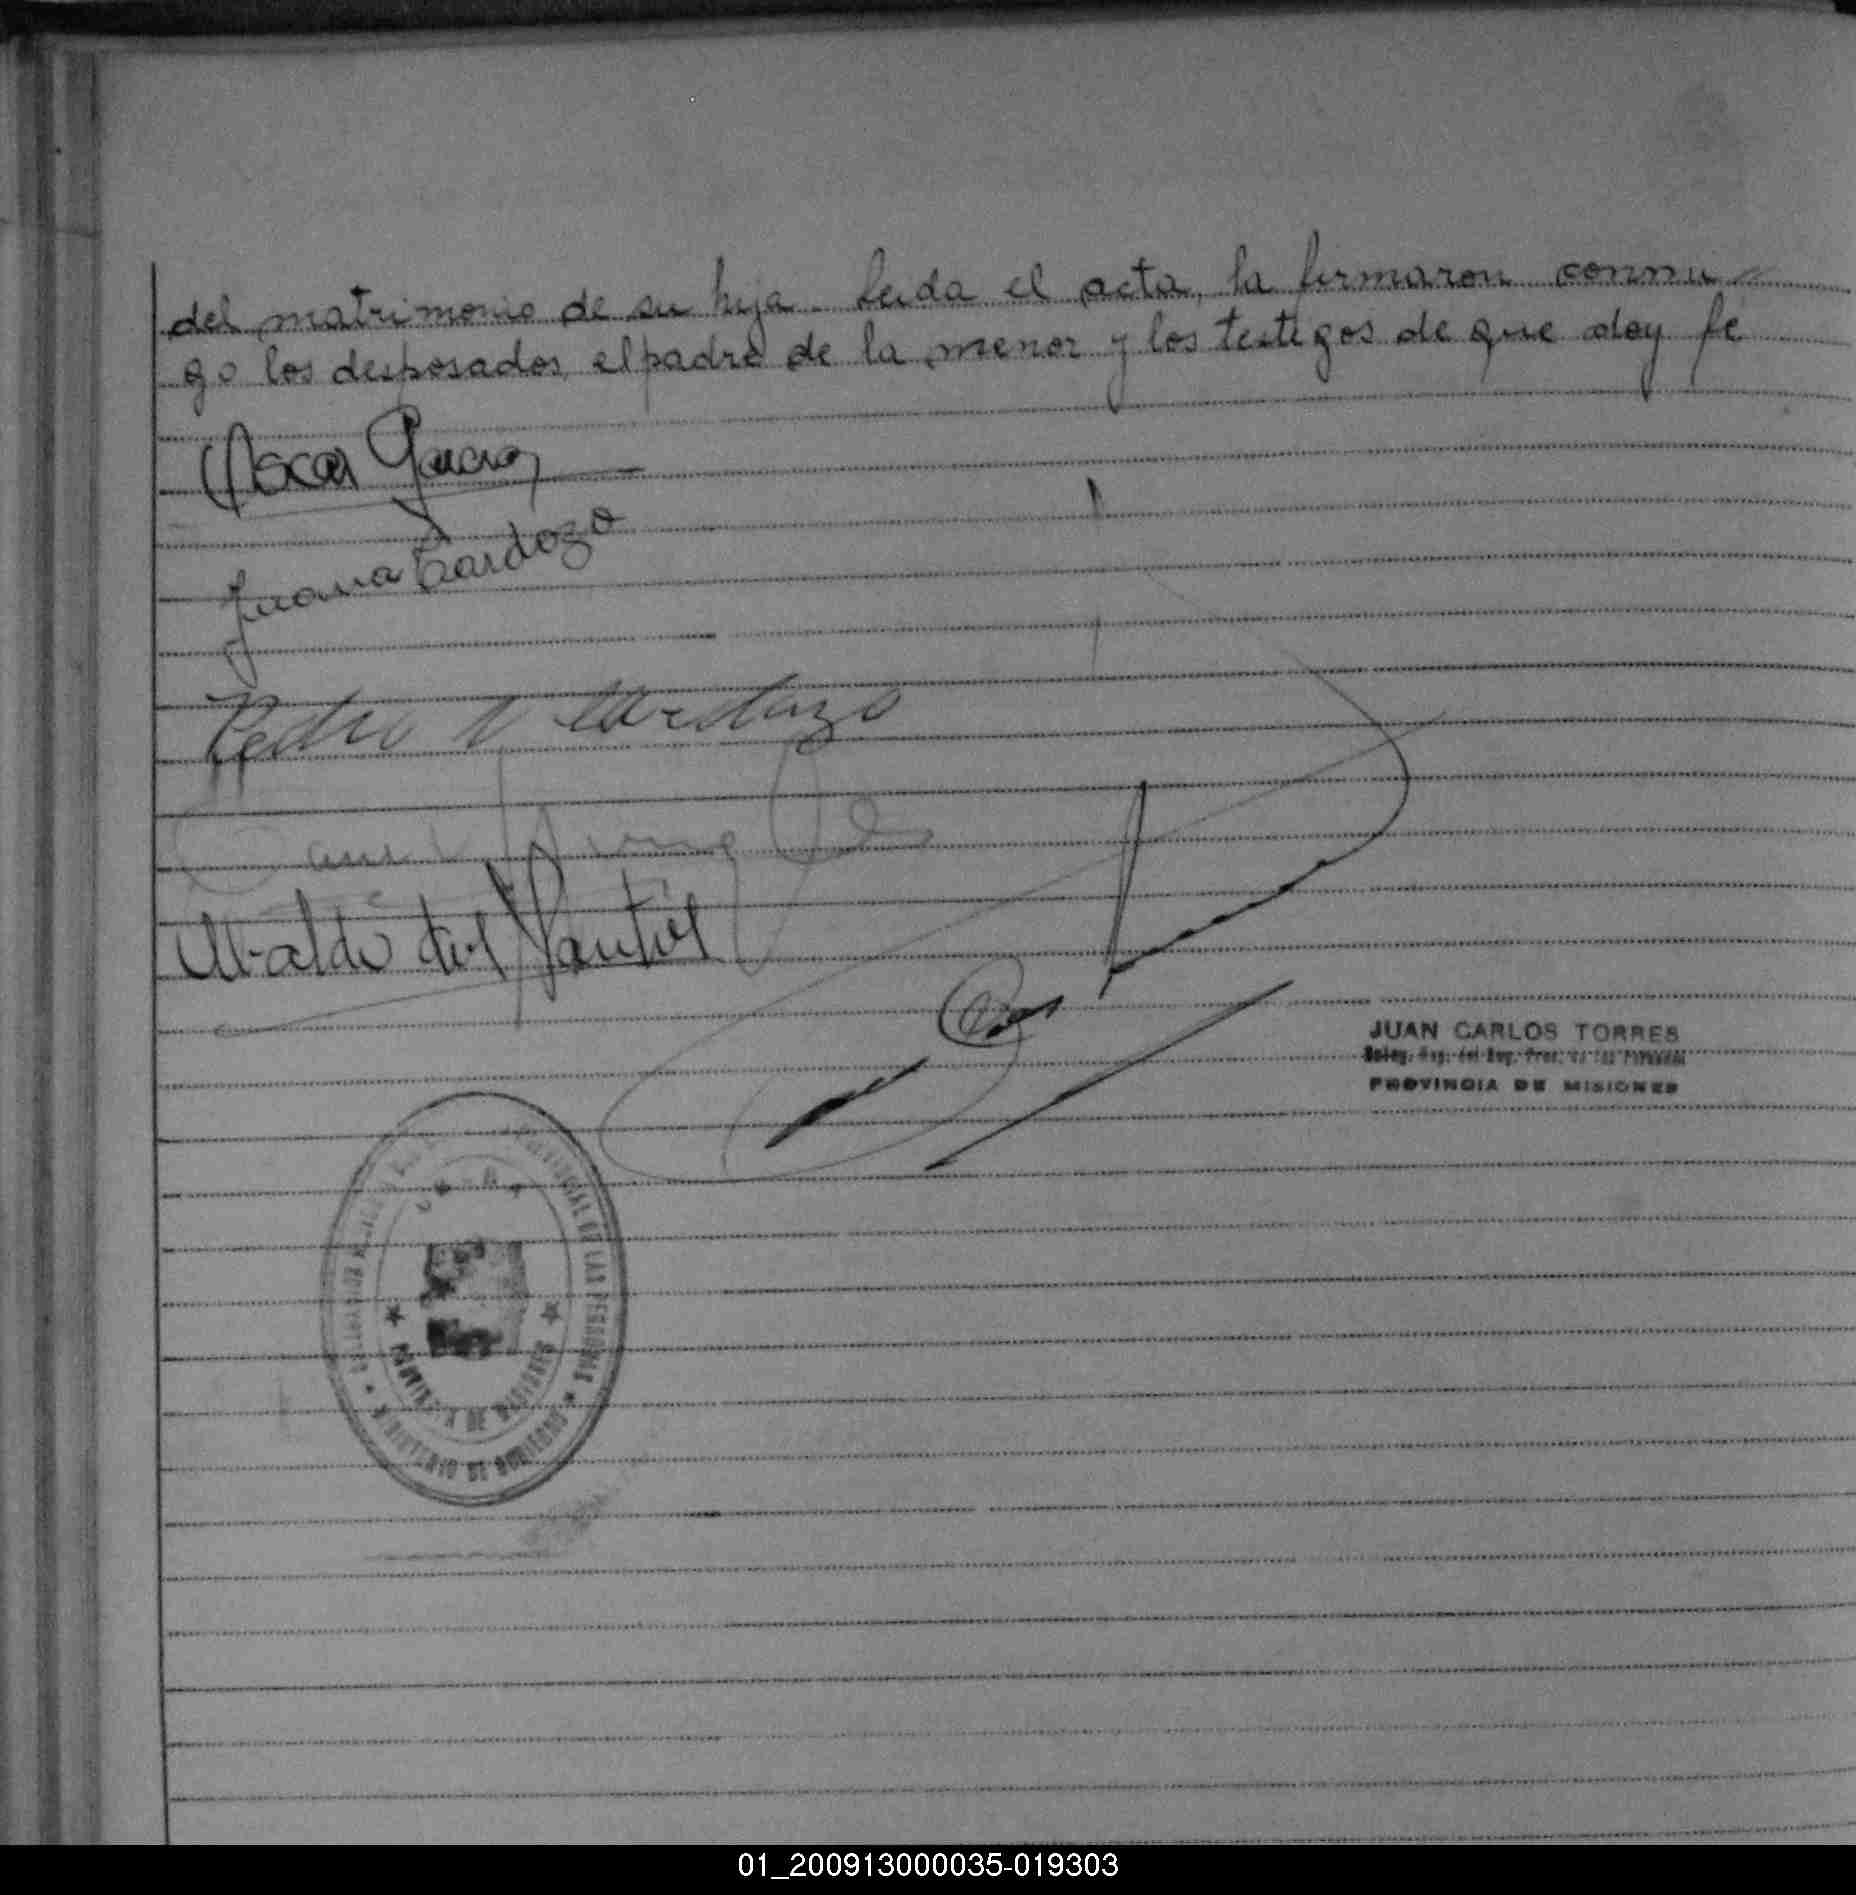 del matrimonio de su hija. Leida el acta, la firmaron conmi
go los desposados, el padre de la menor y los testigos de que doy fé
Oscar Garcia
Juana Cardozo
Pedro Cardozo
Ubaldo dos Santos
JUAN CARLOS TORRES
PROVINCIA DE MISIONES
PROVINCIAL DE LAS PERSONAS
MINISTERIO DE GOBIERNO
PROVINCIA DE MISIONES
01_200913000035-019303